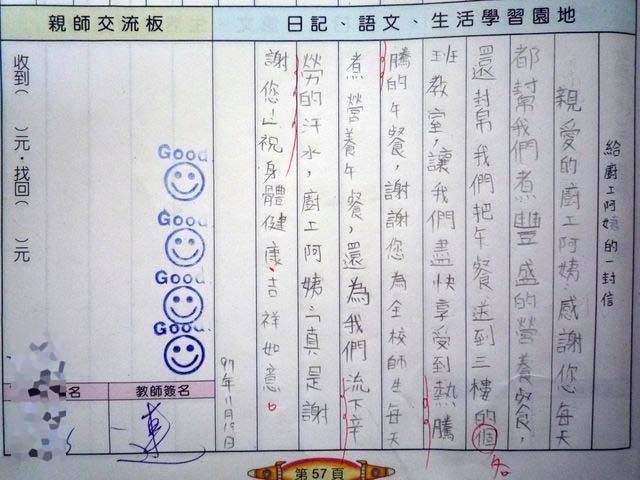 親師交流板
日記、語文、生活學習園地
給廚工阿姨的一封信
親愛的廚工阿姨，感謝您每天
都幫我們煮豐盛的營養餐，
還封幫我們把午餐送到三樓的個
各
班教室，讓我們盡快享受到熱騰
騰的午餐，謝謝您為全校師生每天
煮營養午餐，還為我們流下辛
勞的汗水，廚工阿姨「真是謝
謝您」祝身體健康，吉祥如意。
97年11月19日
收到（ ）元，找回（ ）元
Good
Good
Good
Good
名
教師簽名
第57頁